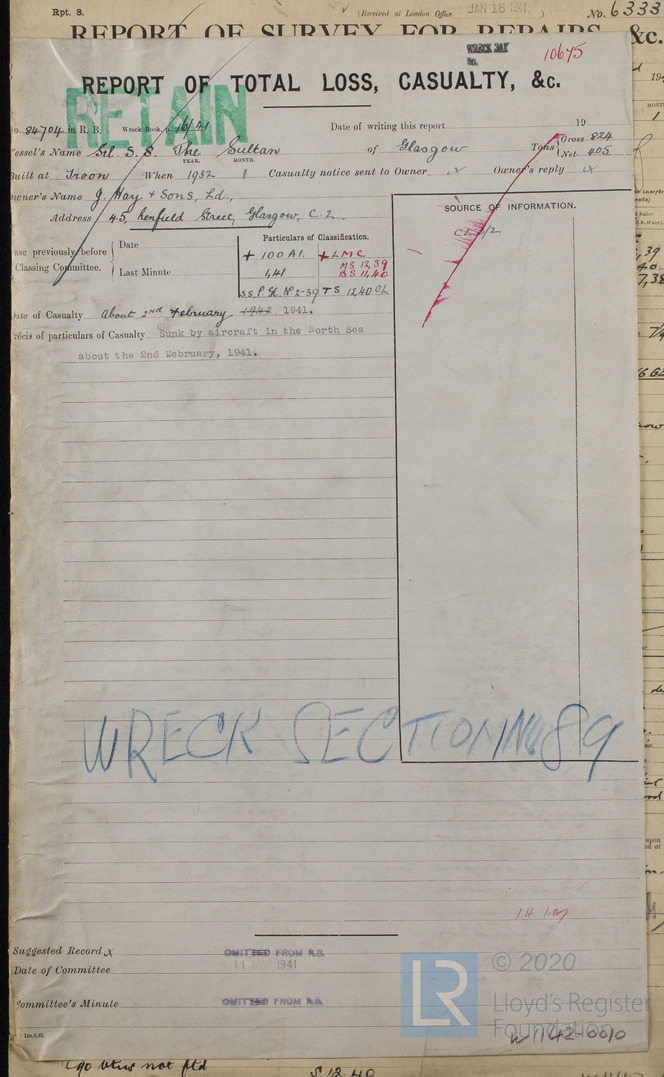 Rpt. 8.
(Received at London Office JAN 16 1941.)
No. 6333
REPORT OF SURVEY FOR REPAIRS, &c.
WRECK
No.
10675
REPORT OF TOTAL LOSS, CASUALTY, &c.
RETAIN
No. 84704 in R. B. Wreck Book, p. 16/41
Date of writing this report 19
Vessel's Name Stl. S.S. The Sultan of Glasgow Tons Gross 824
Net 405
Built at Troon When YEAR. 1932 MONTH. 1 Casualty notice sent to Owner x Owner's reply x
Owner's Name J. Hay & Sons, Ld.,
Address 45, Renfield Street, Glasgow, C.2.
SOURCE OF INFORMATION.
Case previously before Classing Committee.
Date
Last Minute
Particulars of Classification.
+ 100 A1. + LMC
1,41 MS 12,39
BS 11,40
SS P. Gl. No 2-39 TS 12,40 CL
Date of Casualty About 2nd February, 1941.
Précis of particulars of Casualty Sunk by aircraft in the North Sea
about the 2nd February, 1941.
WRECK SECTION No 89
Suggested Record x
OMITTED FROM R.B.
11 MAR 1941
Date of Committee
Committee's Minute
OMITTED FROM R.B.
LR
© 2020
Lloyd's Register
Foundation
W1142-0010
1m,4,40.
not ftd
S 12.40